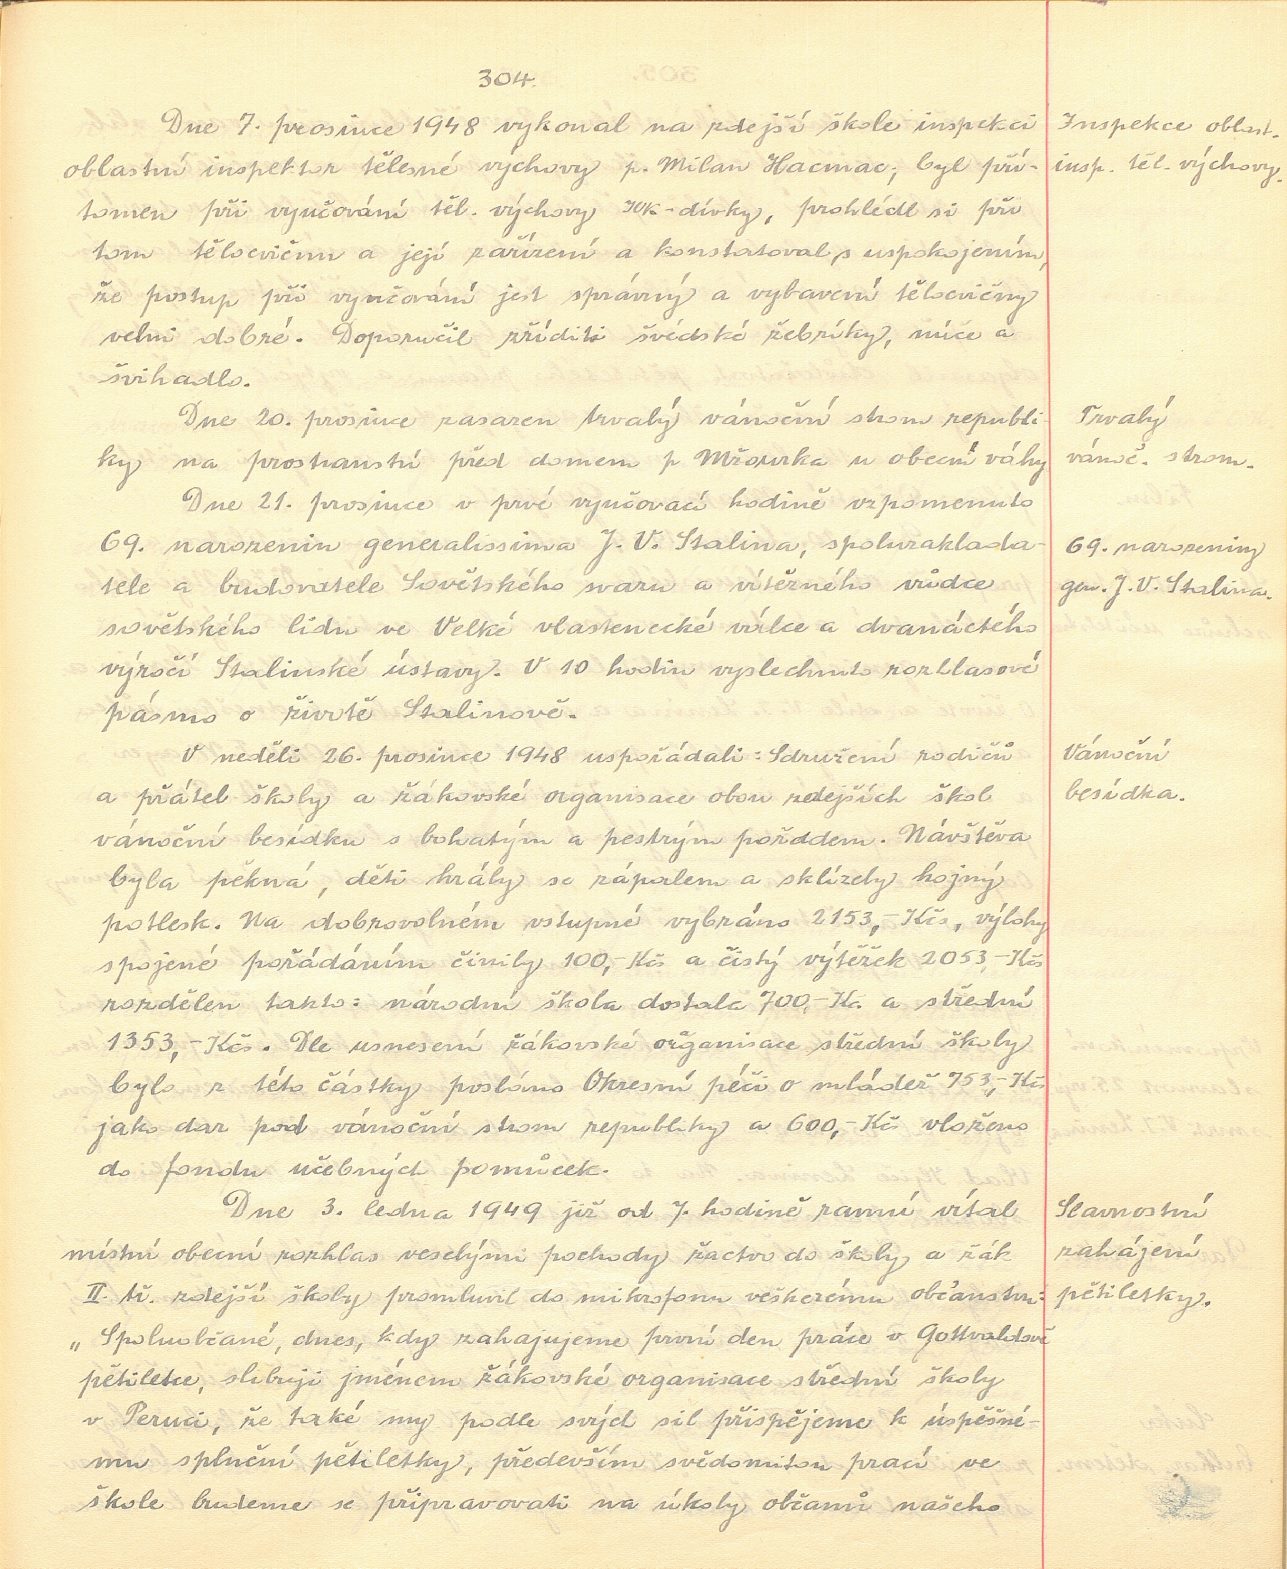 304.
Dne 7. prosince 1948 vykonal na zdejší škole inspekci
oblastní inspektor tělesné výchovy p. Milan Hacmac, byl pří-
tomen při vyučování těl. výchovy dívky, prohlédl si při
tom tělocvičnu a její zařízení a konstatoval s uspokojením,
že postup při vyučování jest správný a vybavení tělocvičny
velmi dobré. Doporučil zříditi švédské žebříky, míče a
švihadlo.
Dne 20. prosince zasazen trvalý vánoční strom republi-
ky na prostranství před domem p Mžourka u obecní váhy
Dne 21. prosince v prvé vyučovací hodině vzpomenuto
69. narozenin generalissima J. V. Stalina, spoluzaklada-
tele a budovatele Sovětského svazu a vítězného vůdce
sovětského lidu ve Velké vlastenecké válce a dvanáctého
výročí Stalinské ústavy. V 10 hodin vyslechnuto rozhlasové
pásmo o životě Stalinově.
V neděli 26. prosince 1948 uspořádali: Sdružení rodičů
a přátel školy a žákovské organisace obou zdejších škol
vánoční besídku s bohatým a pestrým pořadem. Návštěva
byla pěkná, děti hrály se zápalem a sklízely hojný
potlesk. Na dobrovolném vstupné vybráno 2153,- Kčs, výlohy
spojené pořádáním činily 100,- Kčs a čistý výtěžek 2053,- Kčs
rozdělen takto: národní škola dostala 700,- Kčs a střední
1353,- Kčs. Dle usnesení žákovské organisace střední školy
bylo z této částky posláno Okresní péči o mládež 753,- Kčs
jako dar pod vánoční strom republiky a 600,- Kčs vloženo
do fondu učebných pomůcek.
Dne 3. ledna 1949 již od 7. hodině ranní vítal
místní obecní rozhlas veselými pochody žactvo do školy a žák
II. tř. zdejší školy promluvil do mikrofonu veškerému občanstvu:
„Spoluobčané, dnes, kdy zahajujeme první den práce v Gottvaldově
pětiletce, slibuji jménem žákovské organisace střední školy
v Peruci, že také my podle svých sil přispějeme k úspěšné-
mu splnění pětiletky, především svědomitou prací ve
škole budeme se připravovati na úkoly občanů našeho
Inspekce oblast.
insp. těl. výchovy.
Trvalý
vánoč. strom.
69. narozeniny
gen. J. V. Stalina.
Vánoční
besídka.
Slavnostní
zahájení
pětiletky.